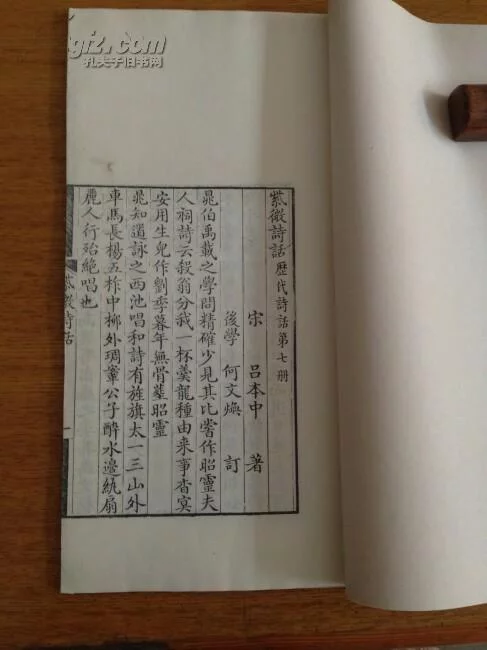 紫微詩話 歷代詩話第七册
宋 呂本中 著
後學 何文煥 訂
晁伯禹載之學問精確少見其比嘗作昭靈夫
人祠詩云殺翁分我一杯羹龍種由来事杳冥
安用生兒作劉季暮年無骨葬昭靈
晁知道詠之西池唱和詩有旌旗太一三山外
車馬長楊五柞中柳外琱鞌公子醉水邊紈扇
麗人行殆絶唱也
紫微詩話
一
孔夫子旧书网
gfz.com